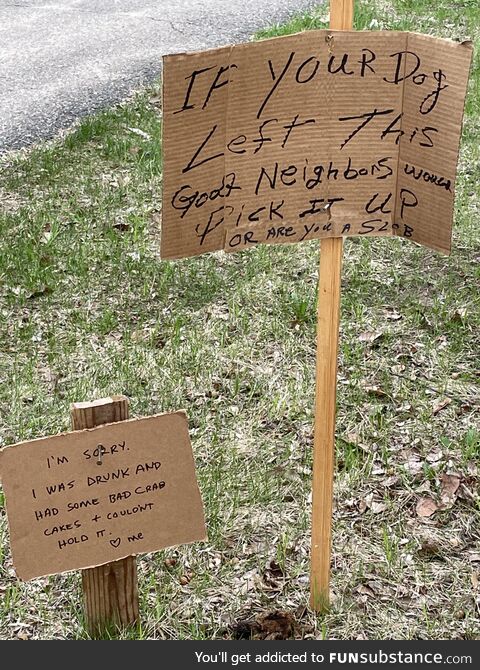 IF YOUR Dog
Left This
Good Neighbors WOULD
Pick IT UP
OR ARE YOU A SLOB
I'M SORRY.
I WAS DRUNK AND
HAD SOME BAD CRAB
CAKES + COULDN'T
HOLD IT. ♡ me
You'll get addicted to FUNsubstance.com